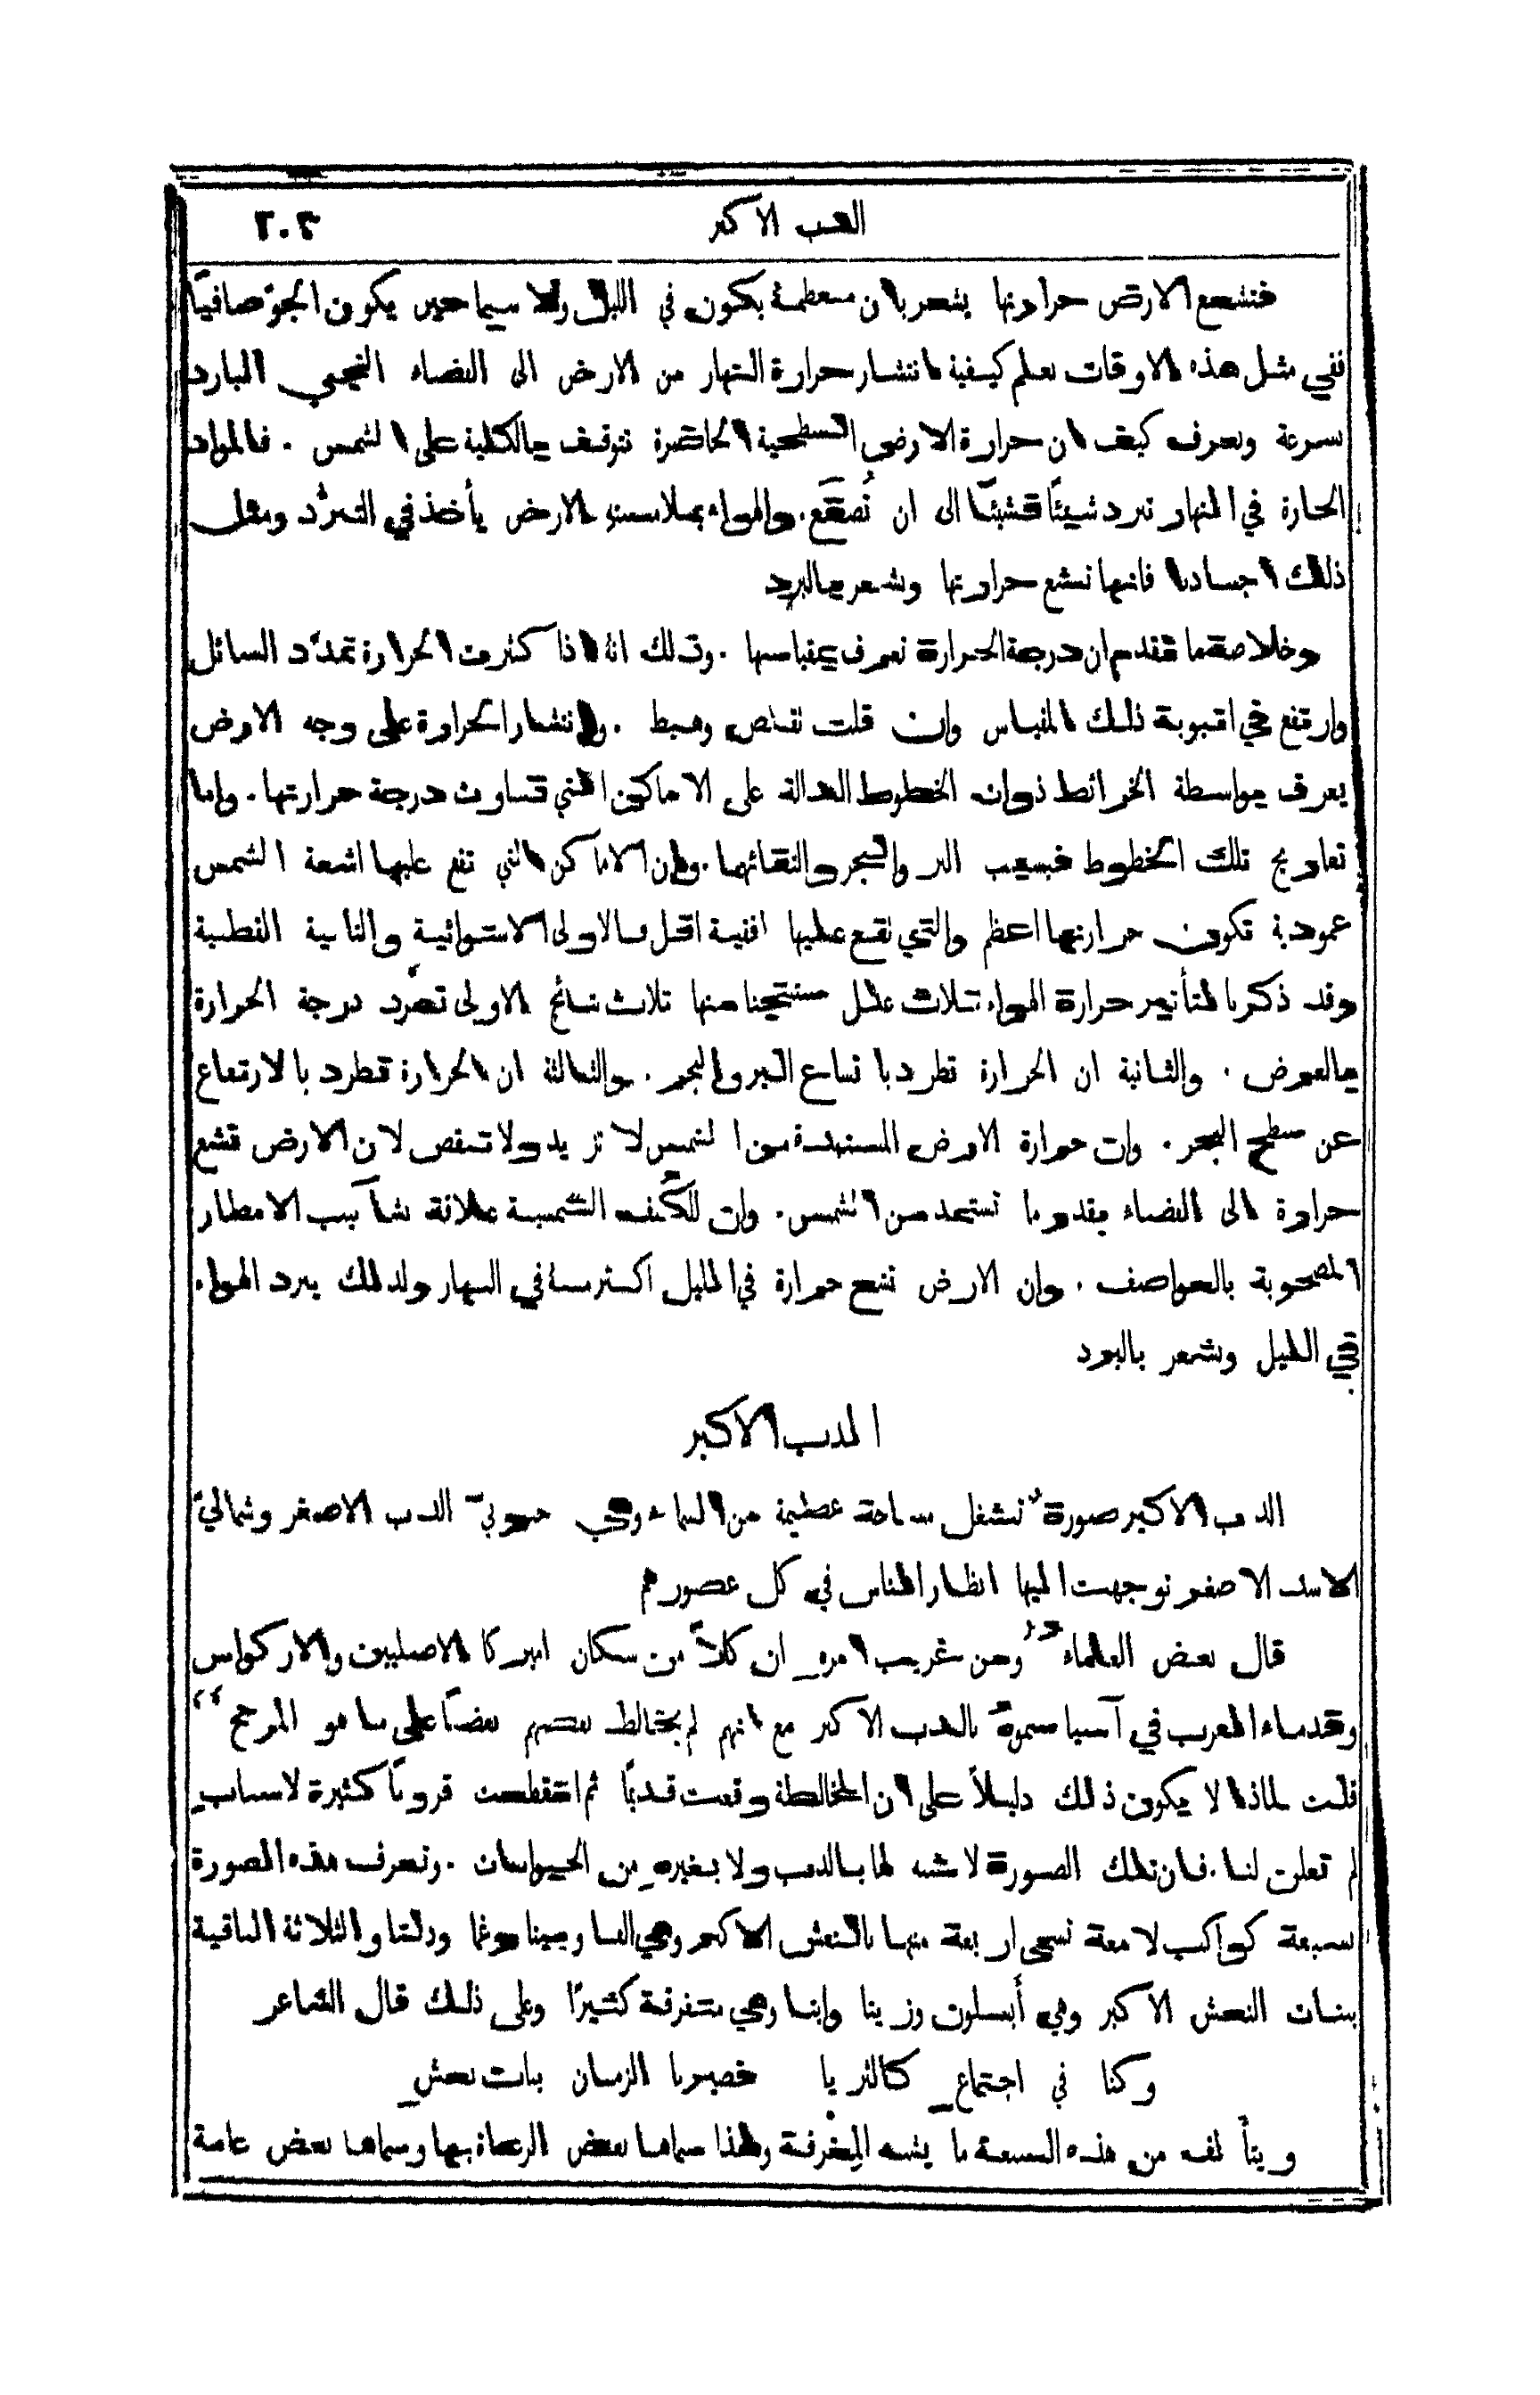 الدب الاكبر ٢٠٣
فتشعع الارض حرارتها يشعر بان معظمهُ يكون في الليل ولا سيما حين يكون الجوّ صافيًا
ففي مثل هذه الاوقات نعلم كيفية انتشار حرارة النهار من الارض الى الفضاء النجمي البارد
بسرعة ونعرف كيف ان حرارة الارض السطحية الحاضرة تتوقف بالكلية على الشمس . فالمواد
الحارة في النهار تبرد شيئًا فشيئًا الى ان تُصقَع . والهواء بملامستهِ الارض يأخذ في التبرُّد ومثل
ذلك اجسادنا فانها تشع حرارتها وتشعر بالبرد
وخلاصة ما تقدم ان درجة الحرارة تعرف بمقياسها . وذلك انهُ اذا كثرت الحرارة تمدّد السائل
وارتفع في انبوبة ذلك المقياس وان قلت تقلص وهبط . وانتشار الحرارة على وجه الارض
يعرف بواسطة الخرائط ذوات الخطوط الدالة على الاماكن التي تتساوى درجة حرارتها . واما
تعاريج تلك الخطوط فبسبب البر والبحر والتقائهما . وان الاماكن التي تقع عليها اشعة الشمس
عمودية تكون حرارتها اعظم والتي تقع عليها افقية اقل فالاولى الاستوائية والثانية القطبية
وقد ذكرنا لتأثير حرارة الهواء ثلاث علل مستنتجنا منها ثلاث نتائج الاولى تصرُّد درجة الحرارة
بالعرض . والثانية ان الحرارة تطرد باتساع البر والبحر . والثالثة ان الحرارة تطرد بالارتفاع
عن سطح البحر . وان حرارة الارض المستمدة من الشمس لا تزيد ولا تنقص لان الارض تشع
حرارة الى الفضاء بقدر ما تستمد من الشمس . وان للكُلَف الشمسية علاقة بشآبيب الامطار
المصحوبة بالعواصف . وان الارض تشع حرارة في الليل اكثر منهُ في النهار ولذلك يبرد الهواء
في الليل ونشعر بالبرد
الدب الاكبر
الدب الاكبر صورة تشغل مساحة عظيمة من السماء وهي جنوبيّ الدب الاصغر وشماليّ
الاسد الاصغر توجهت اليها انظار الناس في كل عصورهم
قال بعض العلماء ”ومن غريب امرهِ ان كلاًّ من سكان اميركا الاصليين والاركواس
وقدماء العرب في آسيا سموهُ بالدب الاكبر مع انهم لم يختالط بعضهم بعضًا على ما هو المرجح“
قلت لماذا لا يكون ذلك دليلاً على ان المخالطة وقعت قديمًا ثم انقطعت قرونًا كثيرة لاسبابٍ
لم تعلن لنا . فان تلك الصورة لا شبه لها بالدب ولا بغيرهِ من الحيوانات . وتعرف هذه الصورة
بسبعة كواكب لامعة تسمى اربعة منها بالنعش الاكبر وهي الفا وبيتا وغما ودلتا والثلاثة الباقية
ببنات النعش الاكبر وهي أبسلون وزيتا وايتا وهي متفرقة كثيرًا وعلى ذلك قال الشاعر
وكنا في اجتماعٍ كالثريا فصيرنا الزمان بنات نعشِ
ويتألف من هذه السبعة ما يشبه المِغْرفة ولهذا سماها بعض الرعاة بها وسماها بعض عامة